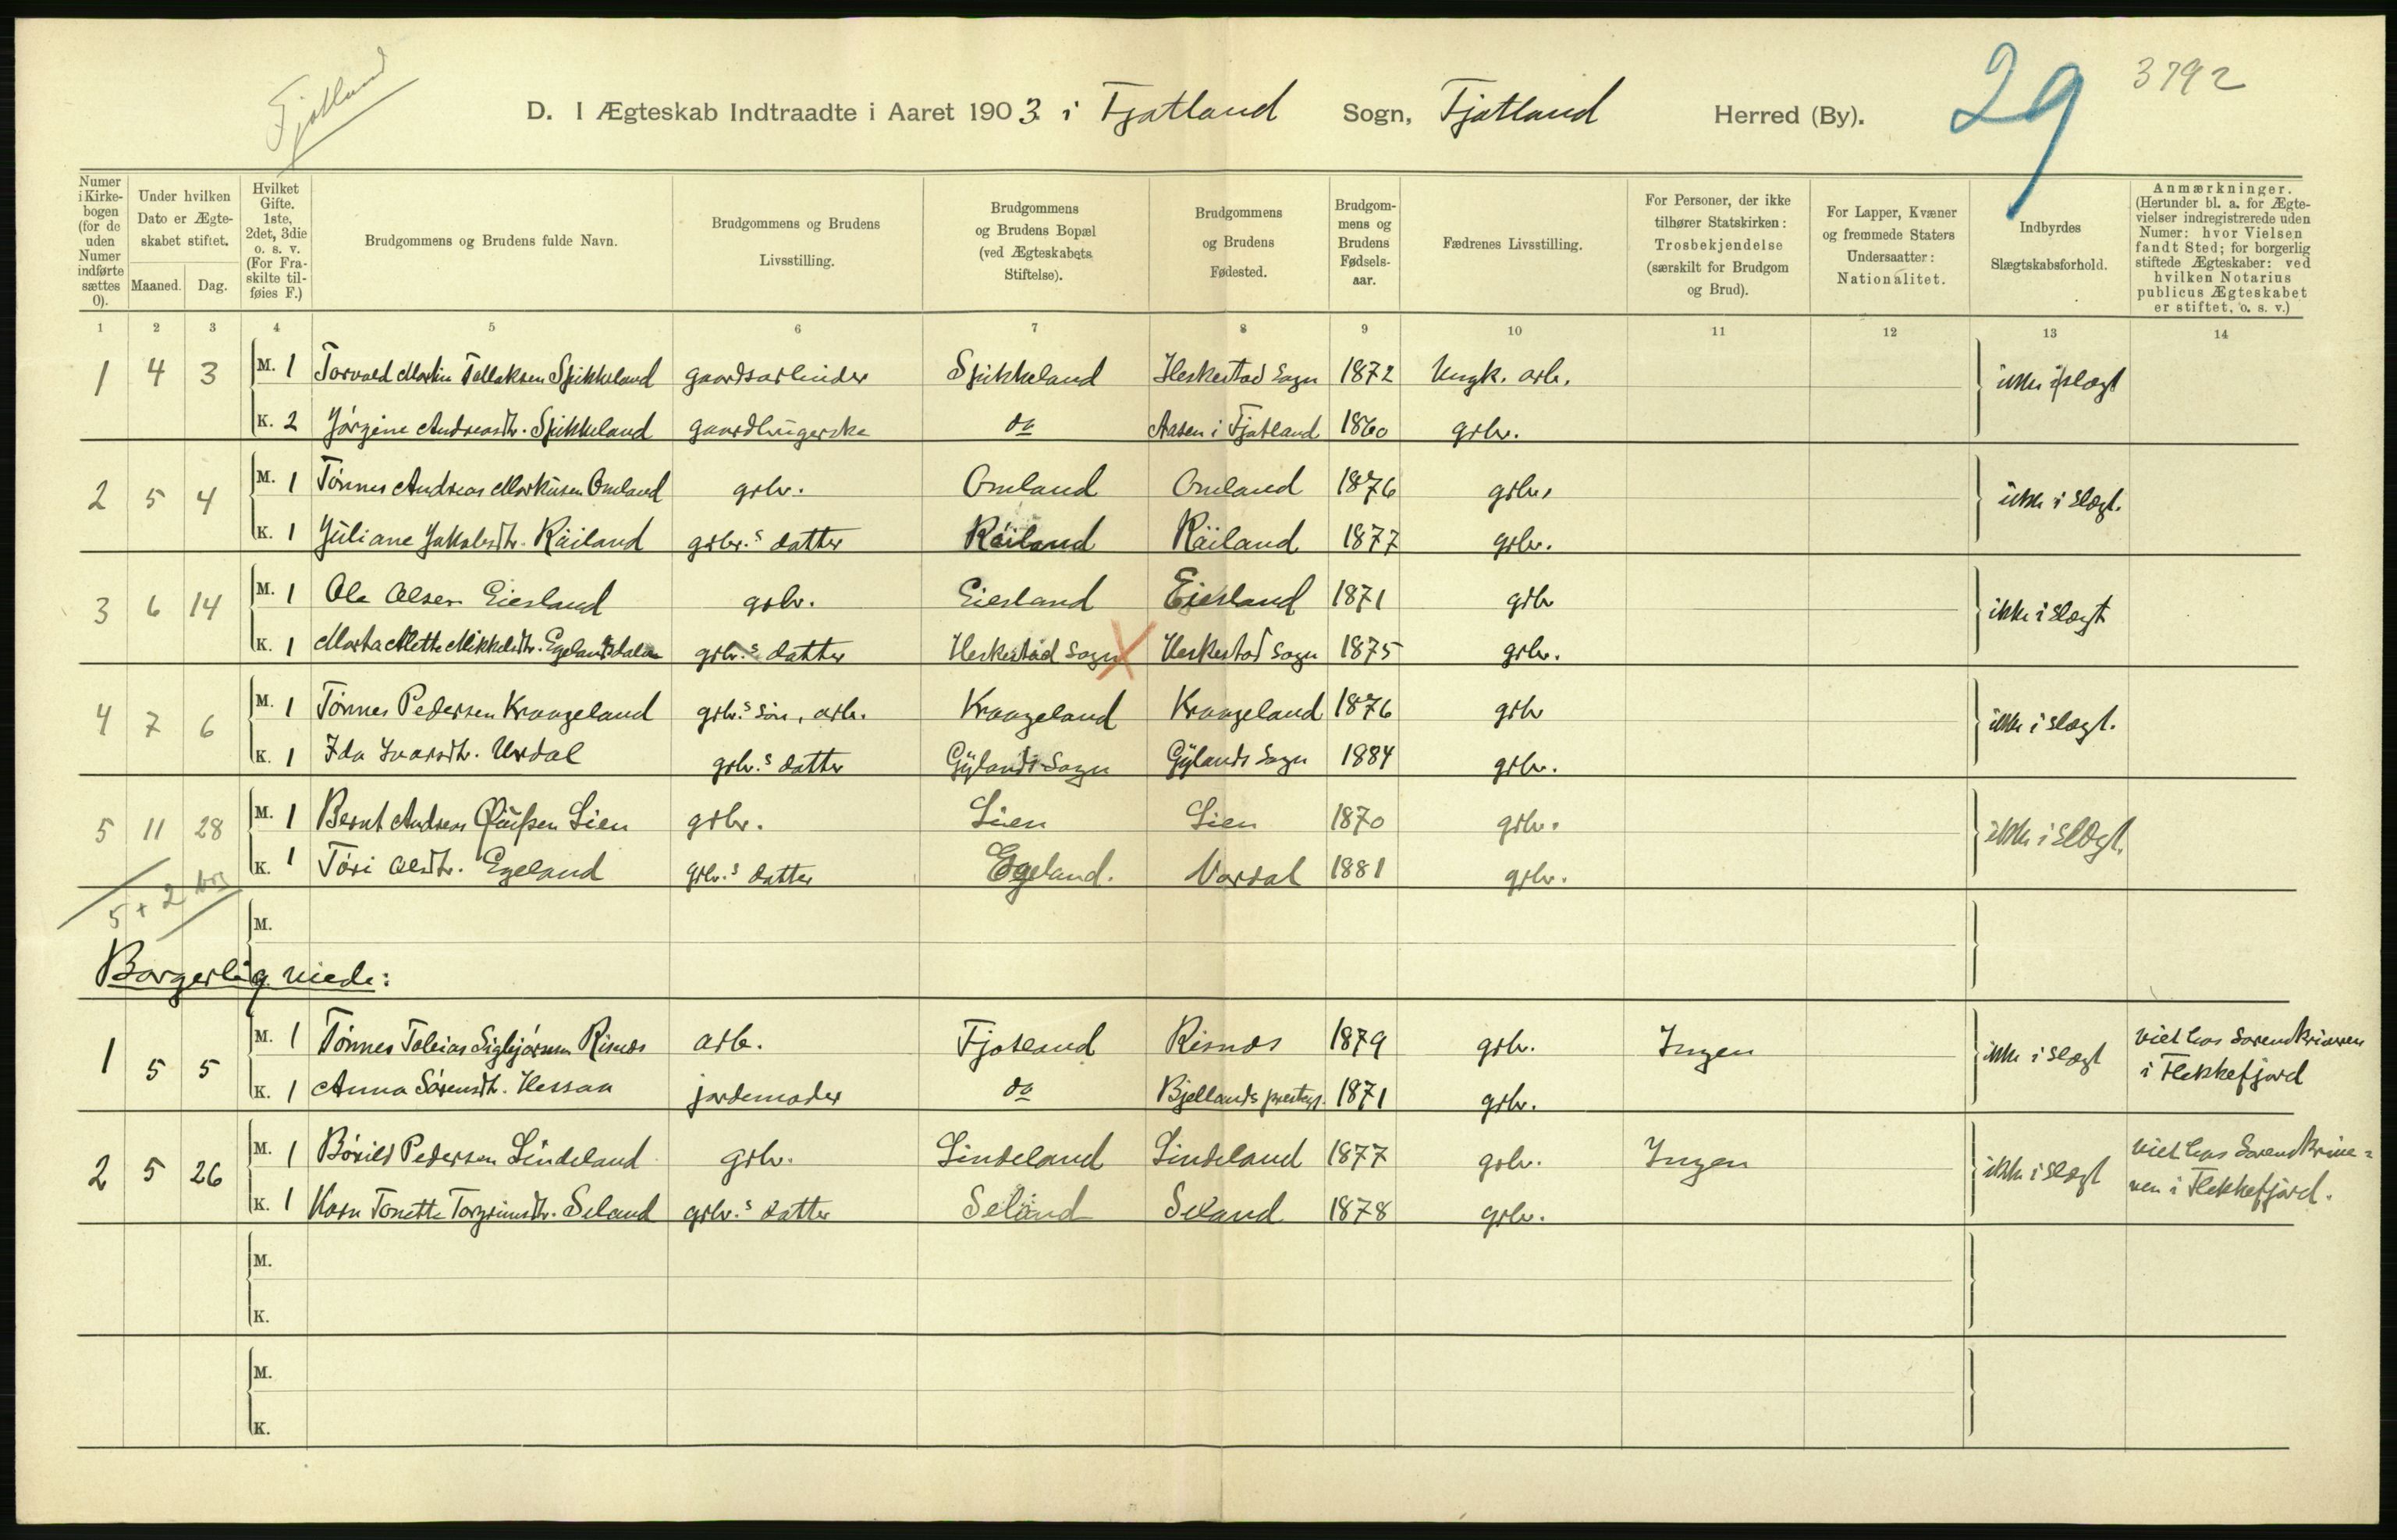 Fjotland
29
3792
D. I Ægteskab Indtraadte i Aaret 1903 i Fjotland Sogn, Fjotland Herred (By).
Numer i Kirkebogen (for de uden Numer indførte sættes 0).
Under hvilken Dato er Ægteskabet stiftet.
Maaned. Dag.
Hvilket Gifte. 1ste, 2det, 3die o. s. v. (For Fraskilte tilføies F.)
Brudgommens og Brudens fulde Navn.
Brudgommens og Brudens Livsstilling.
Brudgommens og Brudens Bopæl (ved Ægteskabets Stiftelse).
Brudgommens og Brudens Fødested.
Brudgommens og Brudens Fødselsaar.
Fædrenes Livsstilling.
For Personer, der ikke tilhører Statskirken: Trosbekjendelse (særskilt for Brudgom og Brud).
For Lapper, Kvæner og fremmede Staters Undersaatter: Nationalitet.
Indbyrdes Slægtskabsforhold.
Anmærkninger. (Herunder bl. a. for Ægtevielser indregistrerede uden Numer: hvor Vielsen fandt Sted; for borgerlig stiftede Ægteskaber: ved hvilken Notarius publicus Ægteskabet er stiftet, o. s. v.)
1 2 3 4 5 6 7 8 9 10 11 12 13 14
1 4 3 M. 1 Torvald Martin Tollaksen Spikkeland gaardsarbeider Spikkeland Heskestad Sogn 1872 Ungk. arb. ikke i slægt
K. 2 Jørgine Andreasdtr. Spikkeland gaardbrugerske do Aasen i Fjotland 1860 grbr.
2 5 4 M. 1 Tønnes Andreas Markusen Omland grbr. Omland Omland 1876 grbr. ikke i slægt.
K. 1 Juliane Jakobsdtr. Räiland grbr.s datter Räiland Räiland 1877 grbr.
3 6 14 M. 1 Ole Olsen Eiesland grbr. Eiesland Eiesland 1871 grbr ikke i slægt
K. 1 Marta Mette Mikkelsdtr. Egelandsdalen grbr.s datter Heskestad Sogn Heskestad Sogn 1875 grbr.
4 7 6 M. 1 Tønnes Pedersen Kraageland grbr.s søn, arb. Kraageland Kraageland 1876 grbr ikke i slægt.
K. 1 Ida Ivarsdtr. Urdal grbr.s datter Gylands Sogn Gylands Sogn 1884 grbr.
5 11 28 M. 1 Bernt Andreas Lien grbr. Lien Lien 1870 grbr. ikke i slægt.
K. 1 Tóri Olsdtr. Egeland grbr.s datter Egeland. Vordal 1881 grbr.
5 + 2 brg
M.
Borgerlig. viede:
1 5 5 M. 1 Tønnes Tobias Sigbjørnsen Risnæs arb. Fjotland Risnæs 1879 grbr. Ingen ikke i slægt viet hos Sorenskriveren
K. 1 Anna Sørensdtr. Hessaa jordemoder do Bjellands prestegj. 1871 grbr. i Flekkefjord
2 5 26 M. 1 Børild Pedersen Lindeland grbr. Lindeland Lindeland 1877 grbr. Ingen ikke i slægt viet hos Sorenskrive=
K. 1 Karn Tonette Torgrimsdtr. Seland grbr.s datter Seland Seland 1878 grbr. ren i Flekkefjord.
M.
K.
M.
K.